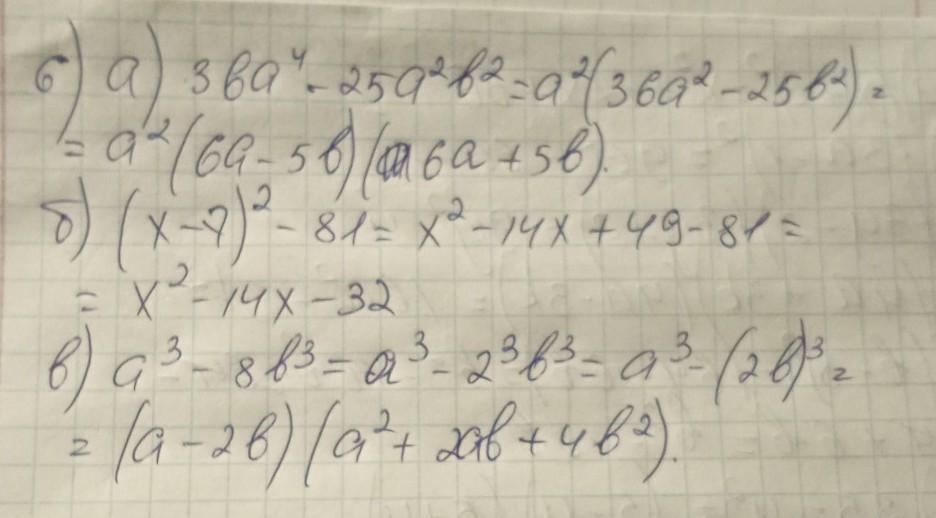 6) а) 36a⁴ - 25a²b² = a²(36a² - 25b²) =
= a²(6a - 5b)(6a + 5b).
б) (x - 7)² - 81 = x² - 14x + 49 - 81 =
= x² - 14x - 32
в) a³ - 8b³ = a³ - 2³b³ = a³ - (2b)³ =
= (a - 2b)(a² + 2ab + 4b²).